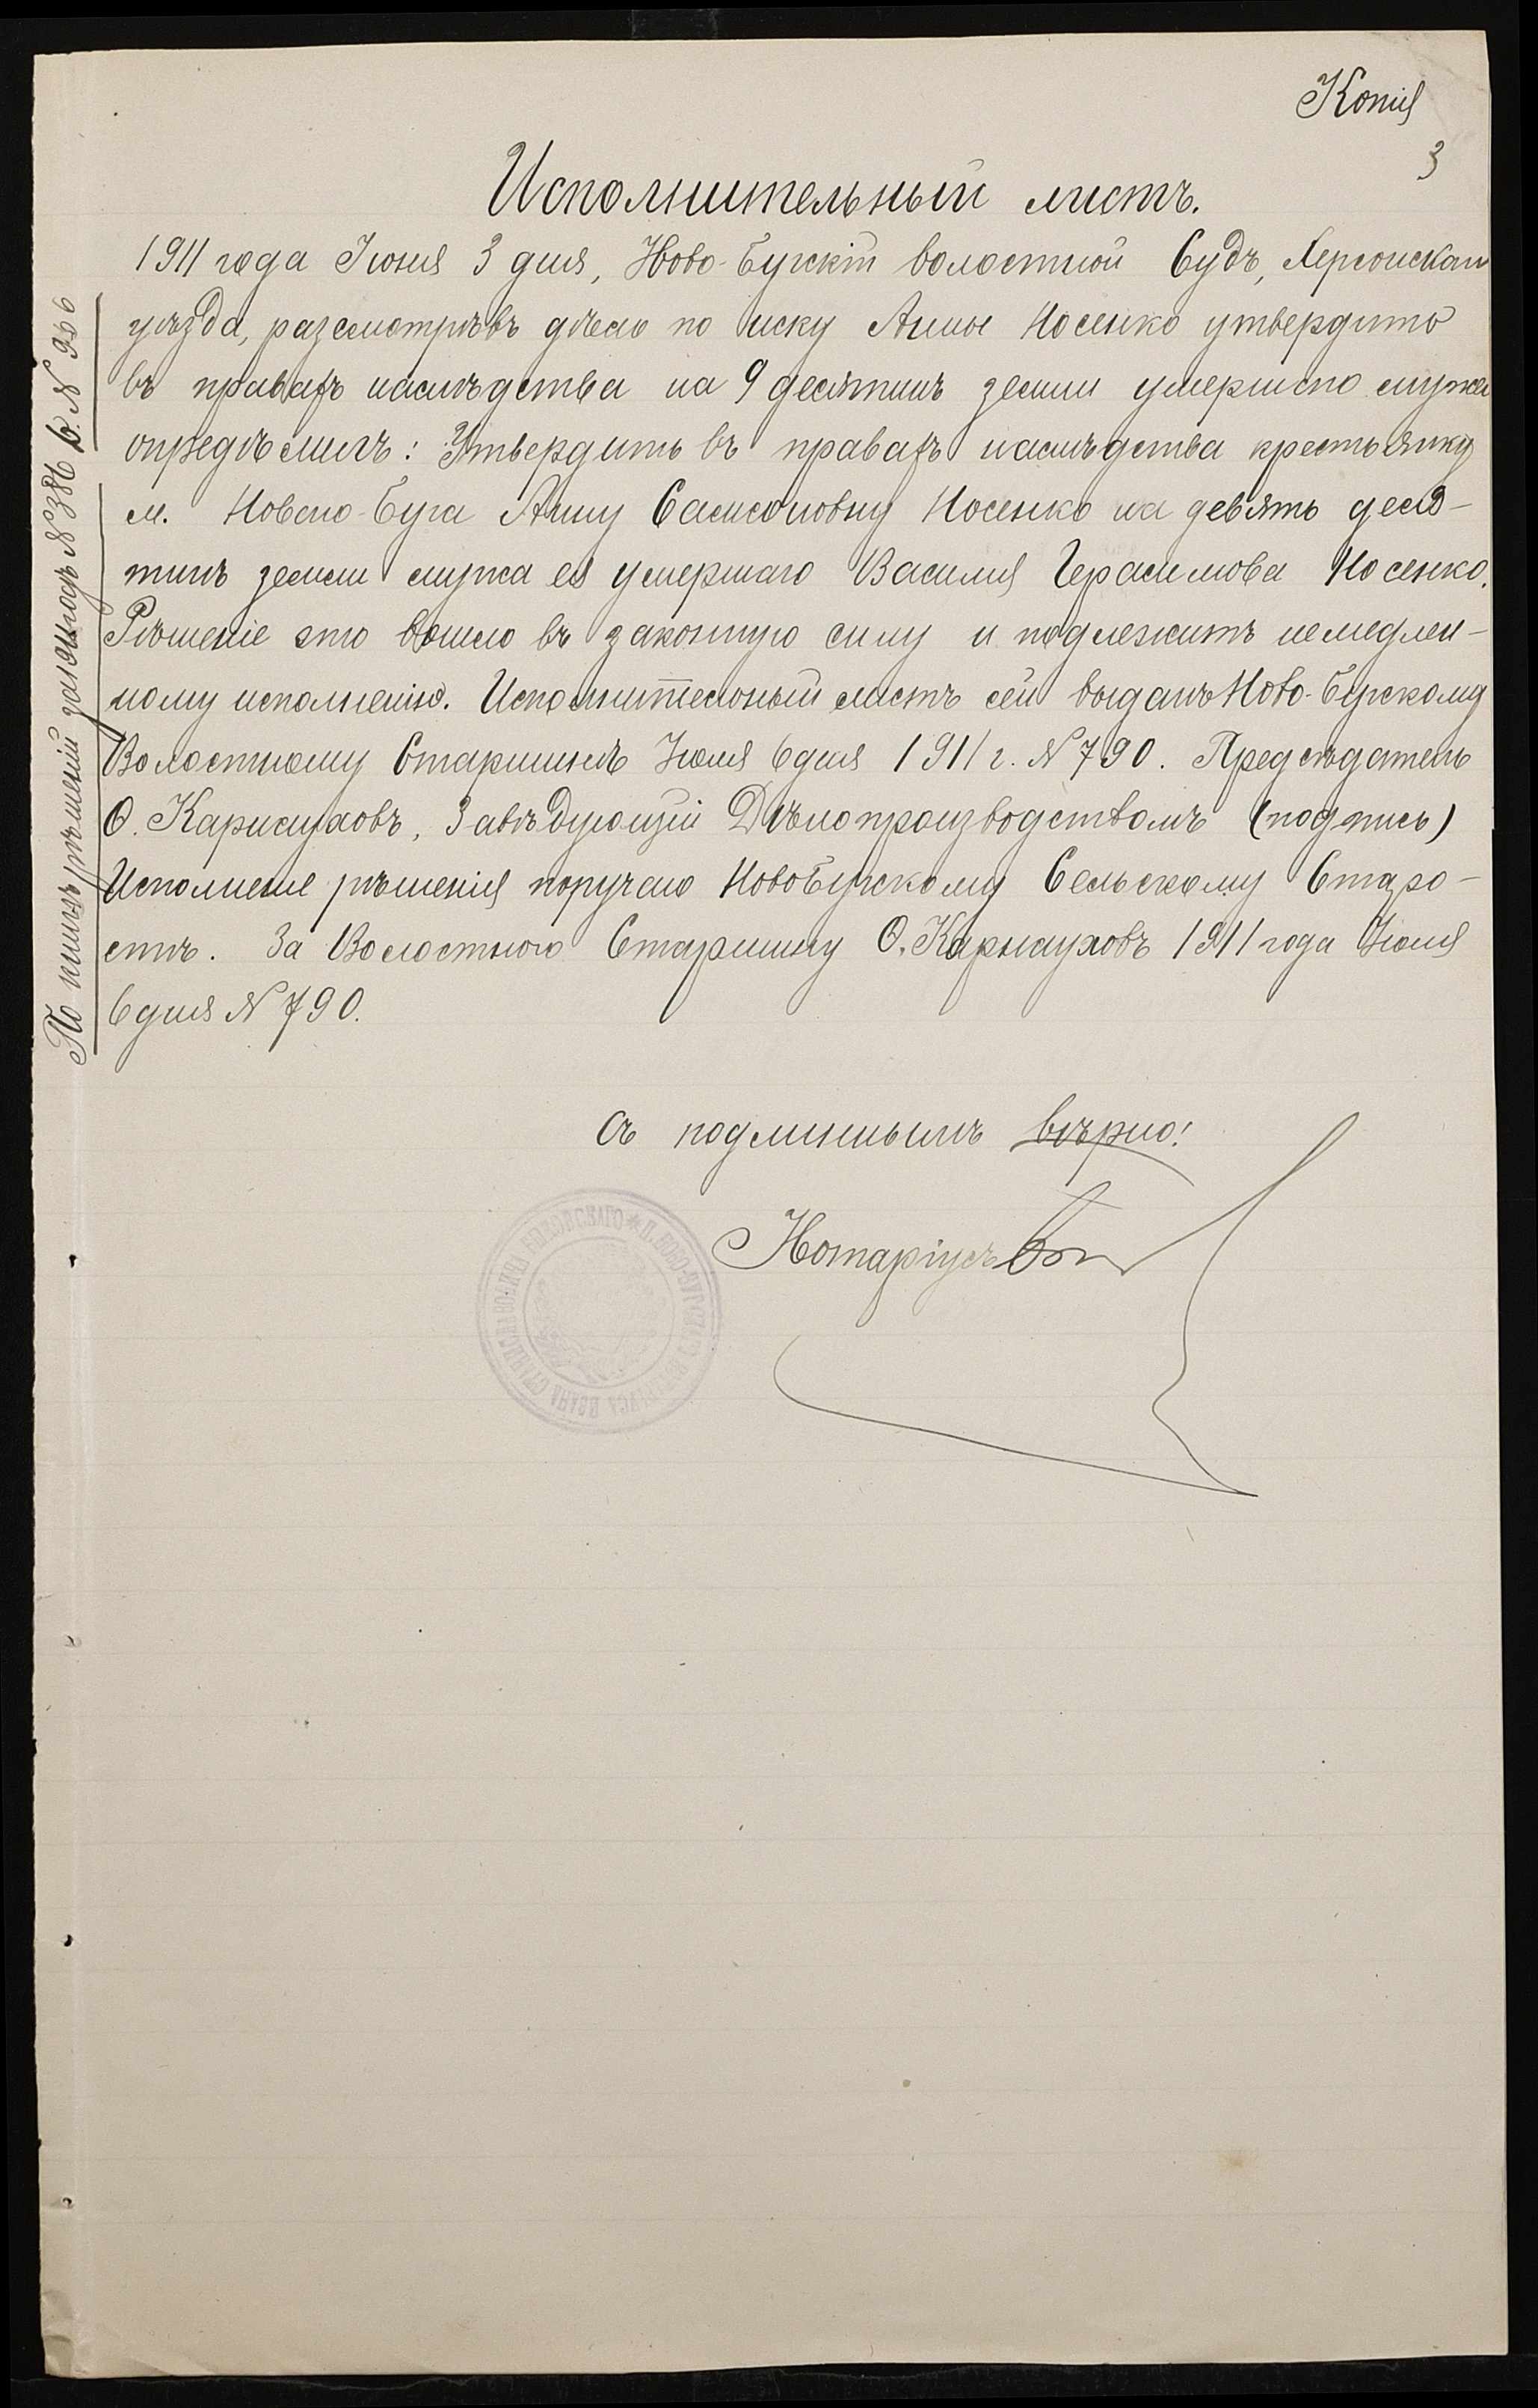 Копія
3
Исполнительный листъ.
1911 года Іюня 3 дня, Ново-Бугскій волостной Судъ, Херсонскаго
уѣзда, разсмотрѣвъ дѣло по иску Анны Носенко утвердить
въ правахъ наслѣдства на 9 десятинъ земли умершаго мужа
опредѣлилъ: Утвердить въ правахъ наслѣдства крестьянку
м. Новаго-Буга Анну Самсоновну Носенко на девять деся-
тинъ земли мужа ея умершаго Василія Герасимова Носенко.
Рѣшеніе это вошло въ законную силу и подлежитъ немедлен-
ному исполненію. Исполнительный листъ сей выданъ Ново-Бугскому
Волостному Старшинѣ Іюля 6 дня 1911 г. N 790. Предсѣдатель
О. Карнауховъ, Завѣдующій Дѣлопроизводствомъ (подпись)
Исполненіе рѣшенія поручаю Новобугскому Сельскому Старо-
стѣ. За Волостного Старшину О. Карнауховъ 1911 года Іюля
6 дня N 790.
Съ подлиннымъ вѣрно!
Нотаріусъ
По книгѣ рѣшеній за 1911 годъ N